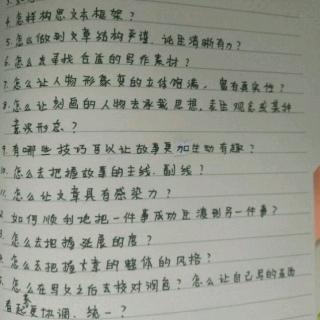 4.怎样构思文本框架?
5.怎么做到文章结构严谨、论述清晰有力?
6.怎么去寻找合适的写作素材?
7.怎么让人物形象变的立体饱满、富有真实性?
8.怎么让刻画的人物去承载思想、表达观念或某种
意识形态?
9.有哪些技巧可以让故事更加生动有趣?
10.怎么去把握故事的主线、副线?
怎么让文章具有感染力?
如何顺利地把一件事成功过渡到另一件事?
怎么去把握延展的度?
怎么去把握文章的整体的风格?
怎么在写文之后去校对润色?怎么让自己写的东西
看起来更协调、统一?